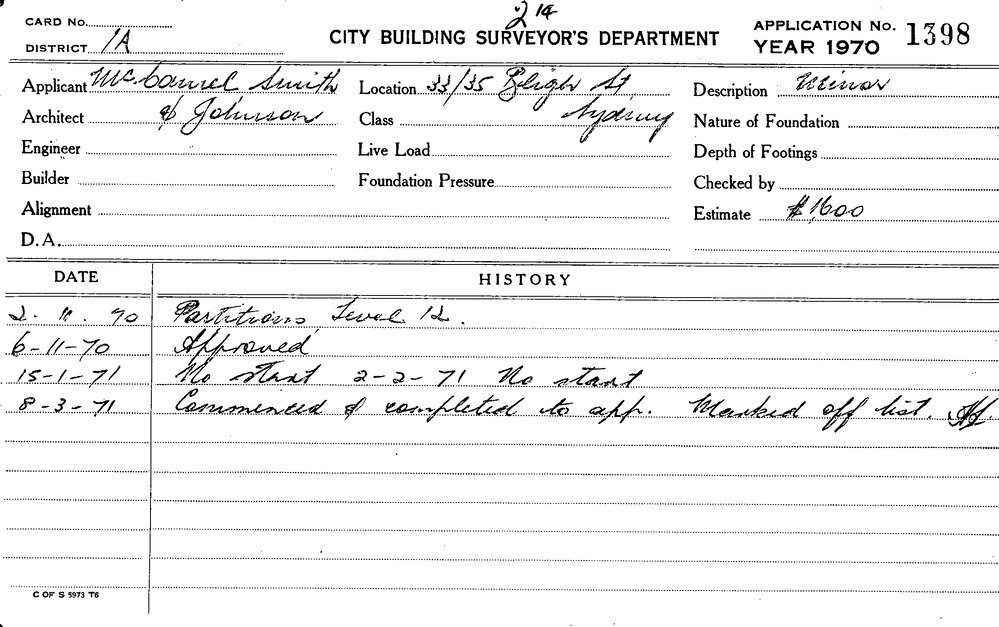 CARD No.
2 14
DISTRICT 1A
CITY BUILDING SURVEYOR'S DEPARTMENT
APPLICATION No. 1398
YEAR 1970
Applicant McConnel Smith
Location 33/35 Bligh St
Description Minor
Architect & Johnson
Class Sydney
Nature of Foundation
Engineer
Live Load
Depth of Footings
Builder
Foundation Pressure
Checked by
Alignment
Estimate $1,600
D.A.
DATE HISTORY
2. 11. 70 Partitions Level 12.
6-11-70 Approved
15-1-71 No start 2-2-71 No start
8-3-71 Commenced & completed to app. Marked off list.
C OF S 5973 T6